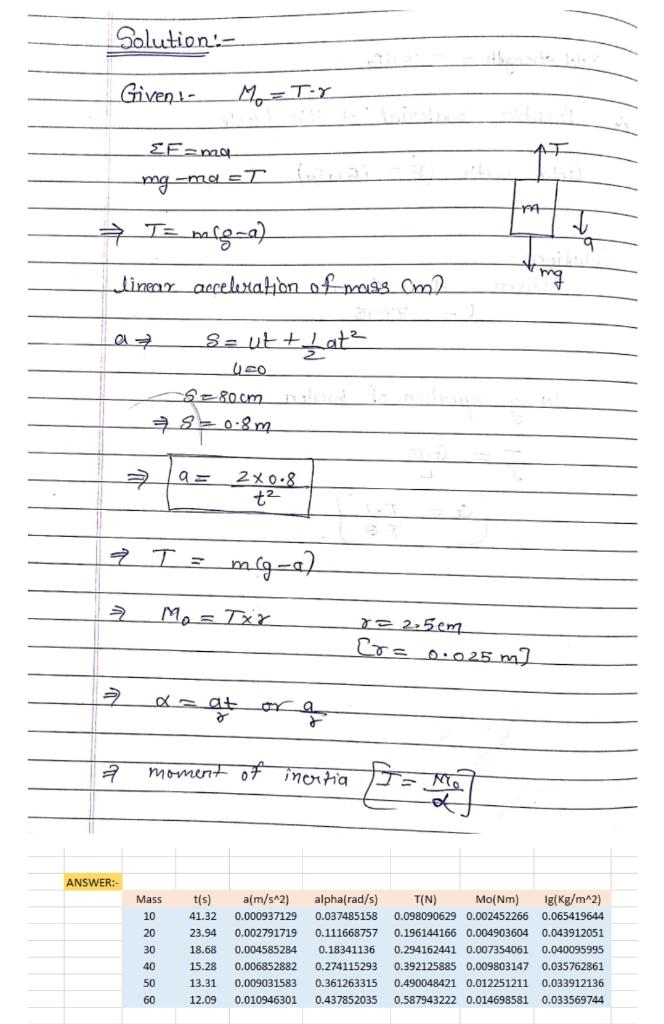 Solution:-
Given:- M₀ = T·r
ΣF = ma
mg - ma = T
⇒ T = m(g-a)
T
m
a
mg
linear acceleration of mass (m)
a ⇒ S = ut + 1/2 at²
u=0
S = 80cm
⇒ S = 0.8m
⇒ a = 2×0.8/t²
⇒ T = m(g-a)
⇒ M₀ = T×r r = 2.5cm
[r = 0.025 m]
⇒ α = at/r or a/r
⇒ moment of inertia [I = M₀/α]
ANSWER:-
Mass t(s) a(m/s^2) alpha(rad/s) T(N) Mo(Nm) Ig(Kg/m^2)
10 41.32 0.000937129 0.037485158 0.098090629 0.002452266 0.065419644
20 23.94 0.002791719 0.111668757 0.196144166 0.004903604 0.043912051
30 18.68 0.004585284 0.18341136 0.294162441 0.007354061 0.040095995
40 15.28 0.006852882 0.274115293 0.392125885 0.009803147 0.035762861
50 13.31 0.009031583 0.361263315 0.490048421 0.012251211 0.033912136
60 12.09 0.010946301 0.437852035 0.587943222 0.014698581 0.033569744